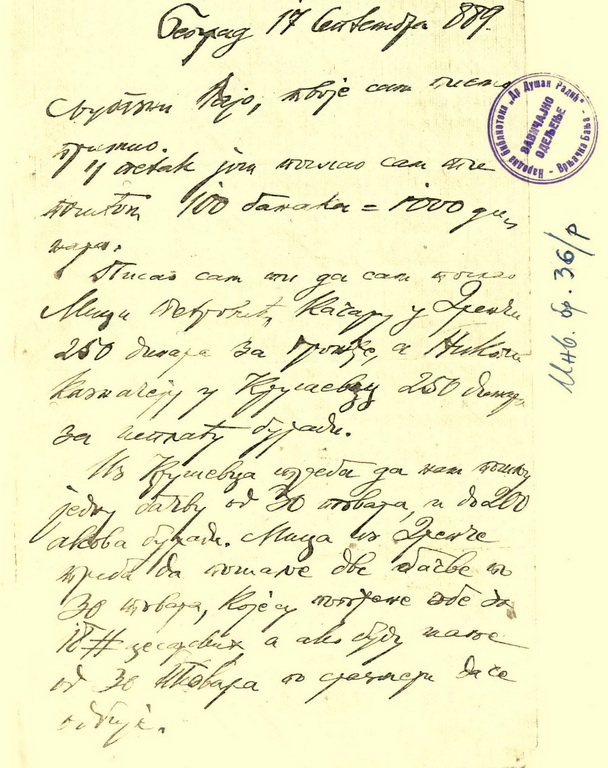 Београд 17 Септембра 889.
Љубазни Пајо, твоје сам писмо
примио.
У петак још послао сам ти
поштом 100 банака = 1000 дин
пара.
Писао сам ти да сам послао
Мици Петровић, Качару у Дренчи
250 динара за грожђе, а Николи
Казначеју у Крушевцу 250 динара
за исплату буради.
Из Крушевца треба да нам пошљу
једну бачву од 30 товара, и до 200
акова буради. Мица из Дренче
треба да пошаље две бачве по
30 товара, које су
18 # цесарских а ако буду мање
од 30 товара по сразмери да се
одбије.
Народна библиотека „Др Душан Радић" - Врњачка Бања -
ЗАВИЧАЈНО
ОДЕЉЕЊЕ
Инв. бр. 36/Р